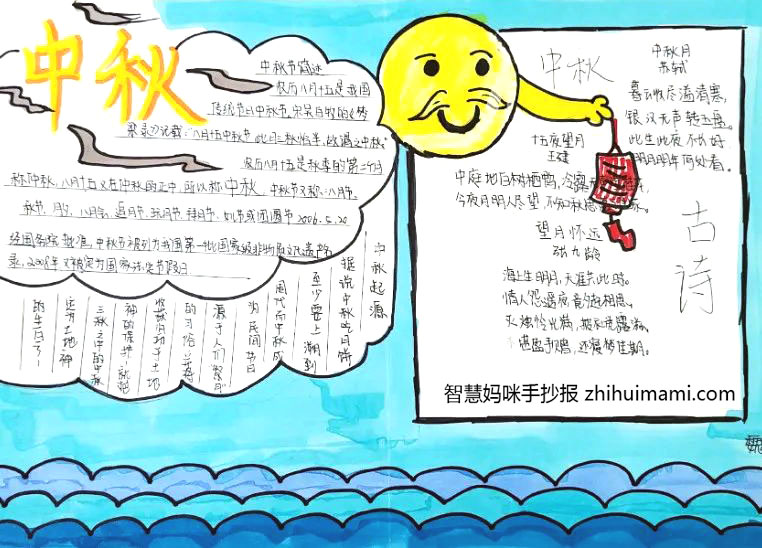 中秋
中秋节简述
农历八月十五是我国
传统节日中秋节,宋吴自牧的《梦
粱录》记载:"八月十五中秋节,此日三秋恰半,故谓之中秋。"
农历八月十五是秋季的第二个月
称仲秋,八月十五又在仲秋的正中,所以称中秋。中秋节又称:八月节、
秋节、月夕、八月会、追月节、玩月节、拜月节、女儿节或团圆节2006.5.20
经国务院批准,中秋节被列为我国第一批国家级非物质文化遗产名
录,2008年又被定为国家法定节假日
中秋起源
据说中秋吃月饼
至少要上溯到
周代而中秋成
为民间节日
源于人们祭月
的习俗
土地
神的保护
三秋之中的中秋
土地神
的生日了
中秋
中秋月
苏轼
暮云收尽溢清寒,
银汉无声转玉盘。
此生此夜不长好,
明月明年何处看。
十五夜望月
王建
中庭地白树栖鸦,冷露
今夜月明人尽望,不知秋思
望月怀远
张九龄
海上生明月,天涯共此时。
情人怨遥夜,竟夕起相思。
灭烛怜光满,披衣觉露滋。
不堪盈手赠,还寝梦佳期。
古诗
智慧妈咪手抄报 zhihuimami.com
魏